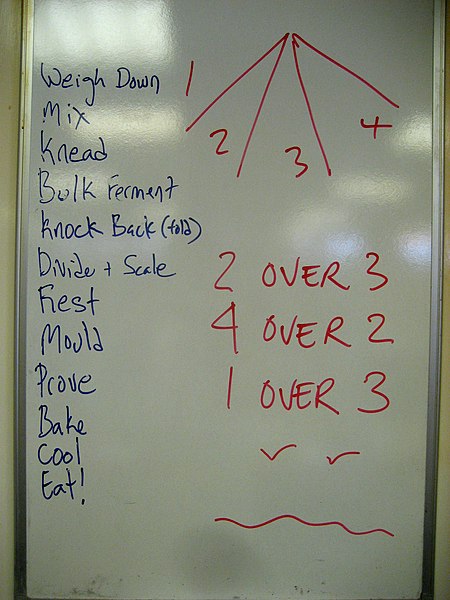 Weigh Down
Mix
Knead
Bulk Ferment
Knock Back (fold)
Divide + Scale
Rest
Mould
Prove
Bake
Cool
Eat!
1
2
3
4
2 OVER 3
4 OVER 2
1 OVER 3